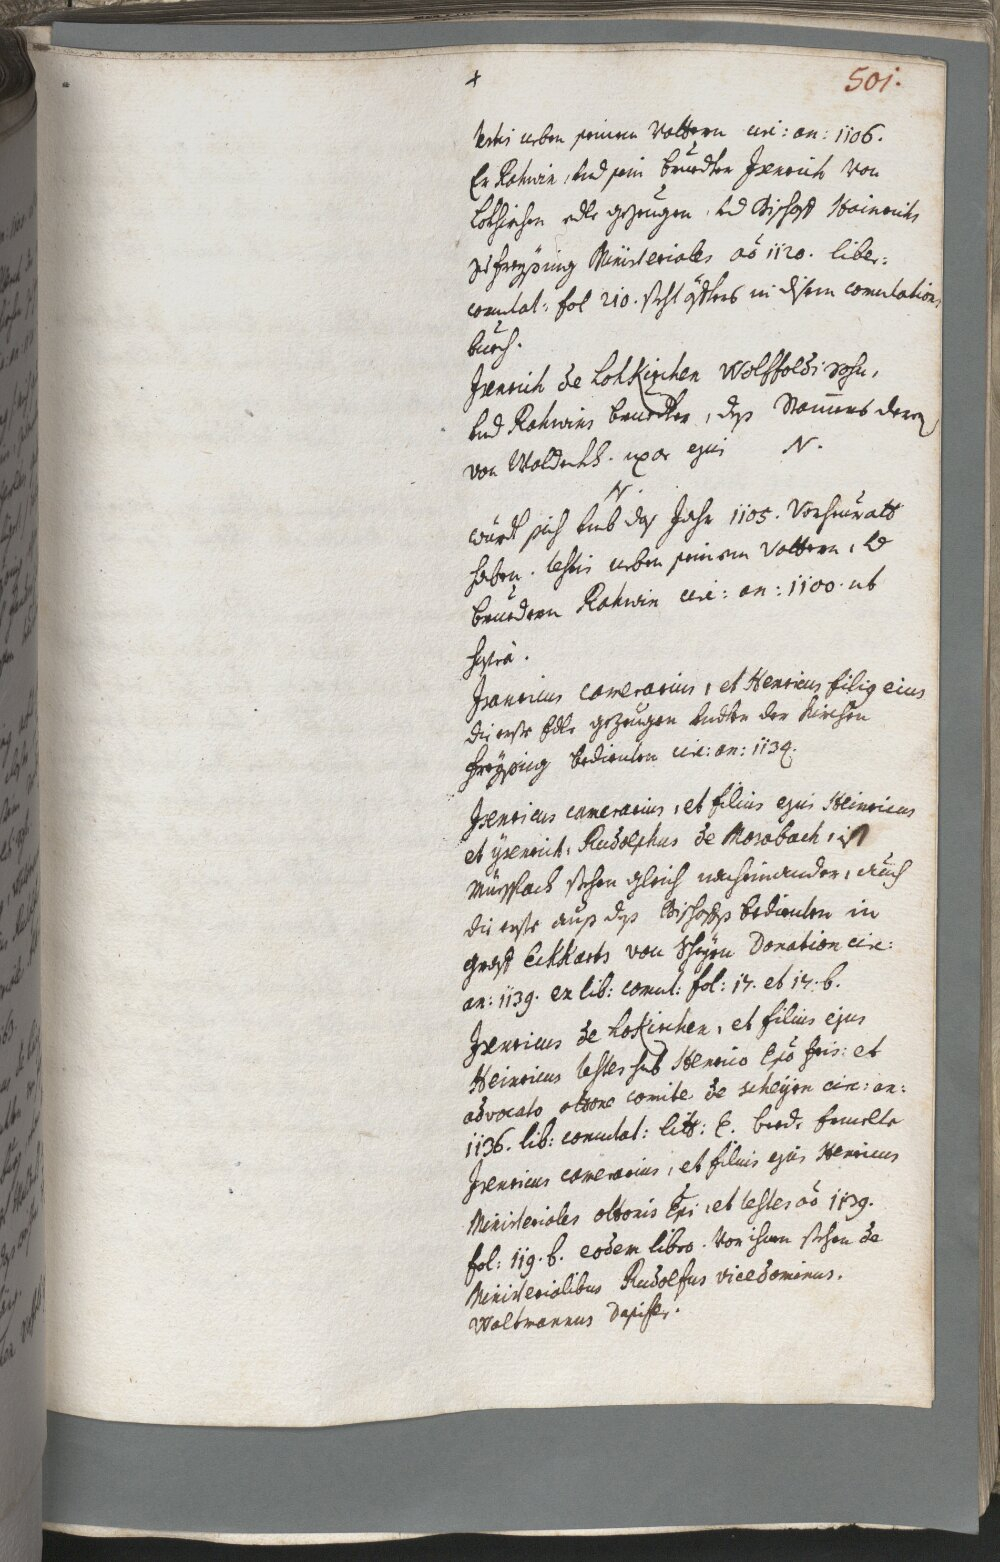 +
501.
testis neben seinem Vattern circ: an: 1106.
Er Rahwin, und sein bruedter Isenrich von
Lohkirchen edle gezeugen, und Bischoff Hainrichs
zu Freysing Ministeriales aõ 1120. liber:
comutat: fol 210. steht öffters in disem comutation
buech.
Isenrich de Lohkirchen Wolffoldi sohn,
und Rahwins bruedter, dess Stammens deren
von Waldeckh. uxor ejus N.
N.
würdt sich umb das Jahr 1105. Verheurath
haben. testis neben seinem Vattern, und
bruedern Rahwin circ: an: 1100. ut
supra.
Isanricus camerarius, et Henricus filius eius
die erste Edle gezeugen undter der Kirchen
Freysing bedienten circ: an: 1134.
Isenricus camerarius, et filius ejus Heinricus
et ÿsenrich, Rudolphus de Morabach,
stehen gleich nacheinander, auch
die erste auss dess Bischoffs bedienten in
Graff Eckharts von Scheyrn Donation circ:
an: 1139. ex lib: comut: fol: 17. et 17. b.
Isenricus de Lokirchen, et filius ejus
Heinricus testes sub Henrico Epõ Fris: et
advocato ottone comite de scheÿrn circ: an:
1136. lib: comutat: litt: E.
Isenricus camerarius, et filius ejus Henricus
Ministeriales ottonis Epi, et testes aõ 1139.
fol: 119. b. eodem libro. Vor ihnen stehen de
Ministerialibus Rudolfus vicedominus.
Waltmannus Dapifer.